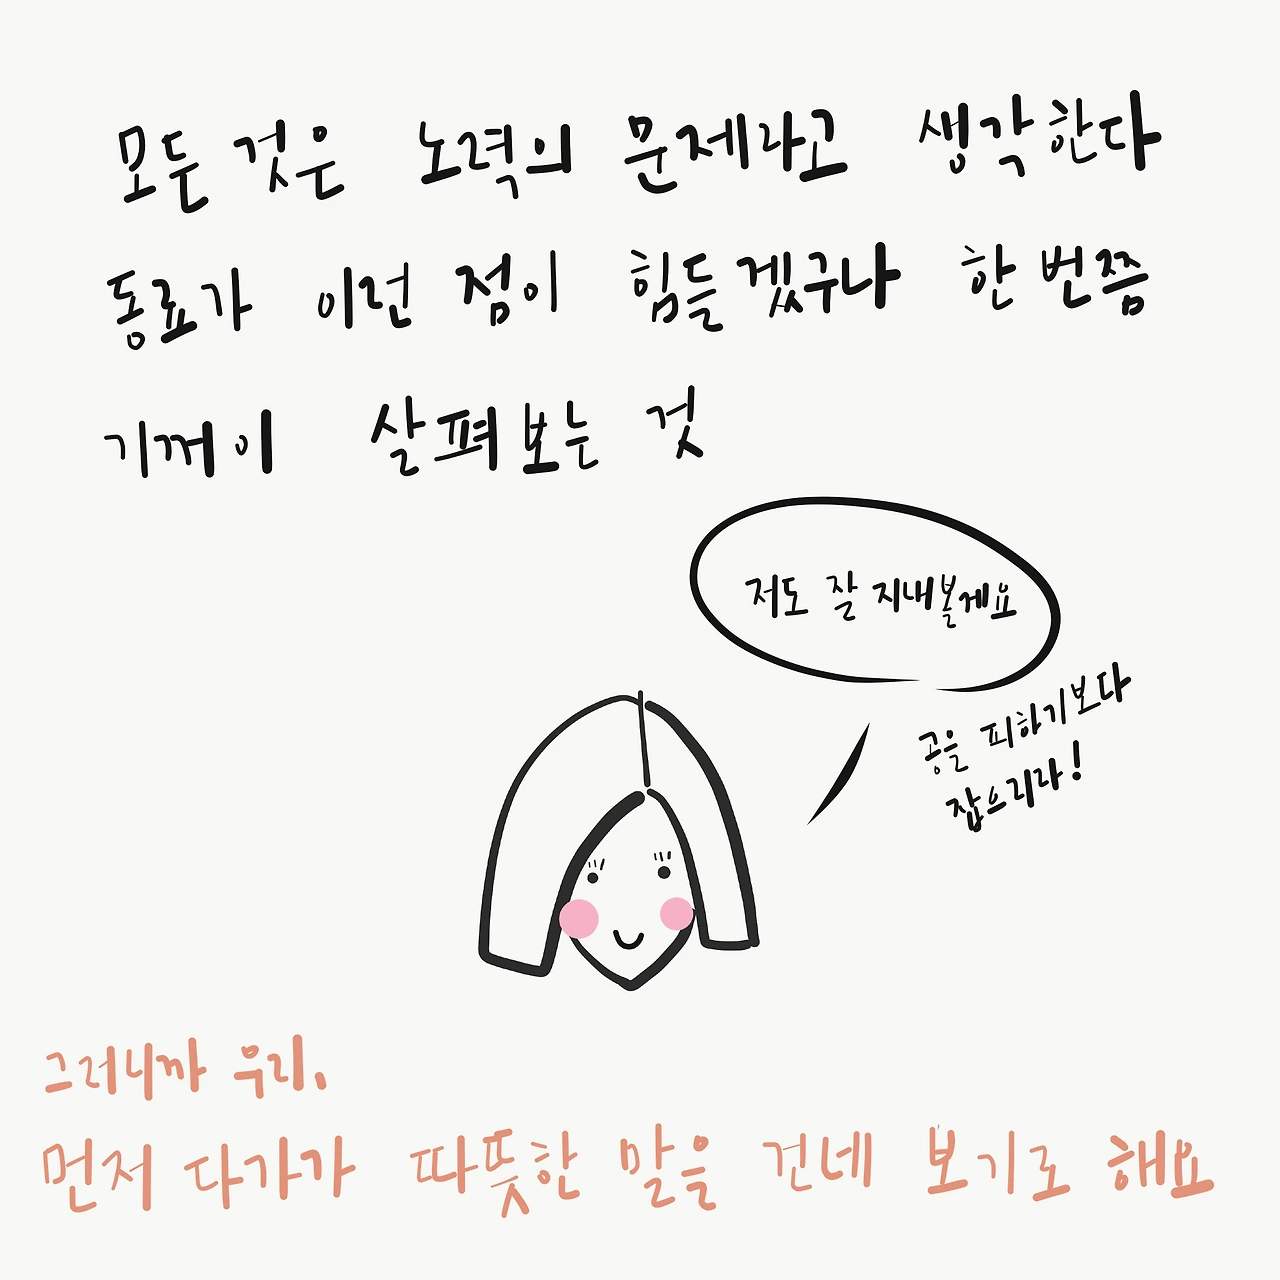 모든 것은 노력의 문제라고 생각한다
동료가 이런 점이 힘들겠구나 한 번쯤
기꺼이 살펴보는 것
저도 잘 지내볼게요
공을 피하기보다
잡으리라!
그러니까 우리.
먼저 다가가 따뜻한 말을 건네 보기로 해요